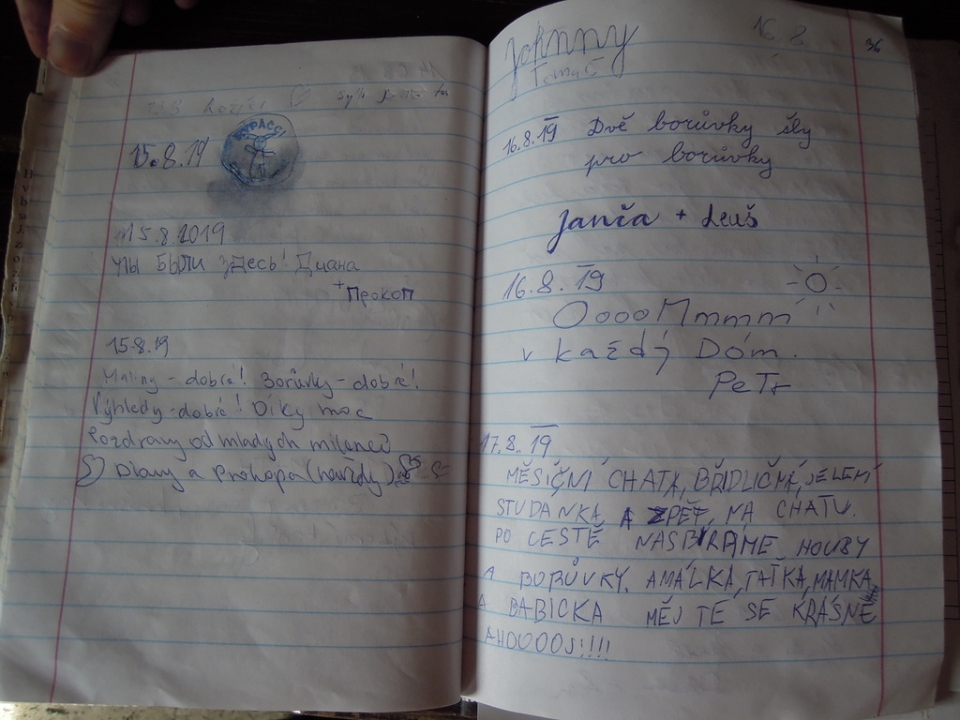 15.8.19
15.8.2019
мы были здесь! Диана
+ Прокоп
15.8.19
Maliny - dobré! Borůvky - dobré!
Výhledy - dobré! Díky moc
Pozdravy od mladých milenců
Diany a Prokopa (navždy)
Johnny
16.8.
36
Tomáš
16.8.19 Dvě borůvky šly
pro borůvky
Janča + Leuš
16.8.19
OoooMmmm
v každý Dóm.
PeTr
17.8.19
MĚSIČNÍ CHATA, BŘIDLIČNÁ, JELENÍ
STUDANKA A ZPĚT, NA CHATU.
PO CESTĚ NASBÍRÁME HOUBY
A BORŮVKY. AMÁLKA, TAŤKA, MAMKA
A BABICKA MĚJ TE SE KRÁSNĚ
AHOOOOJ!!!!